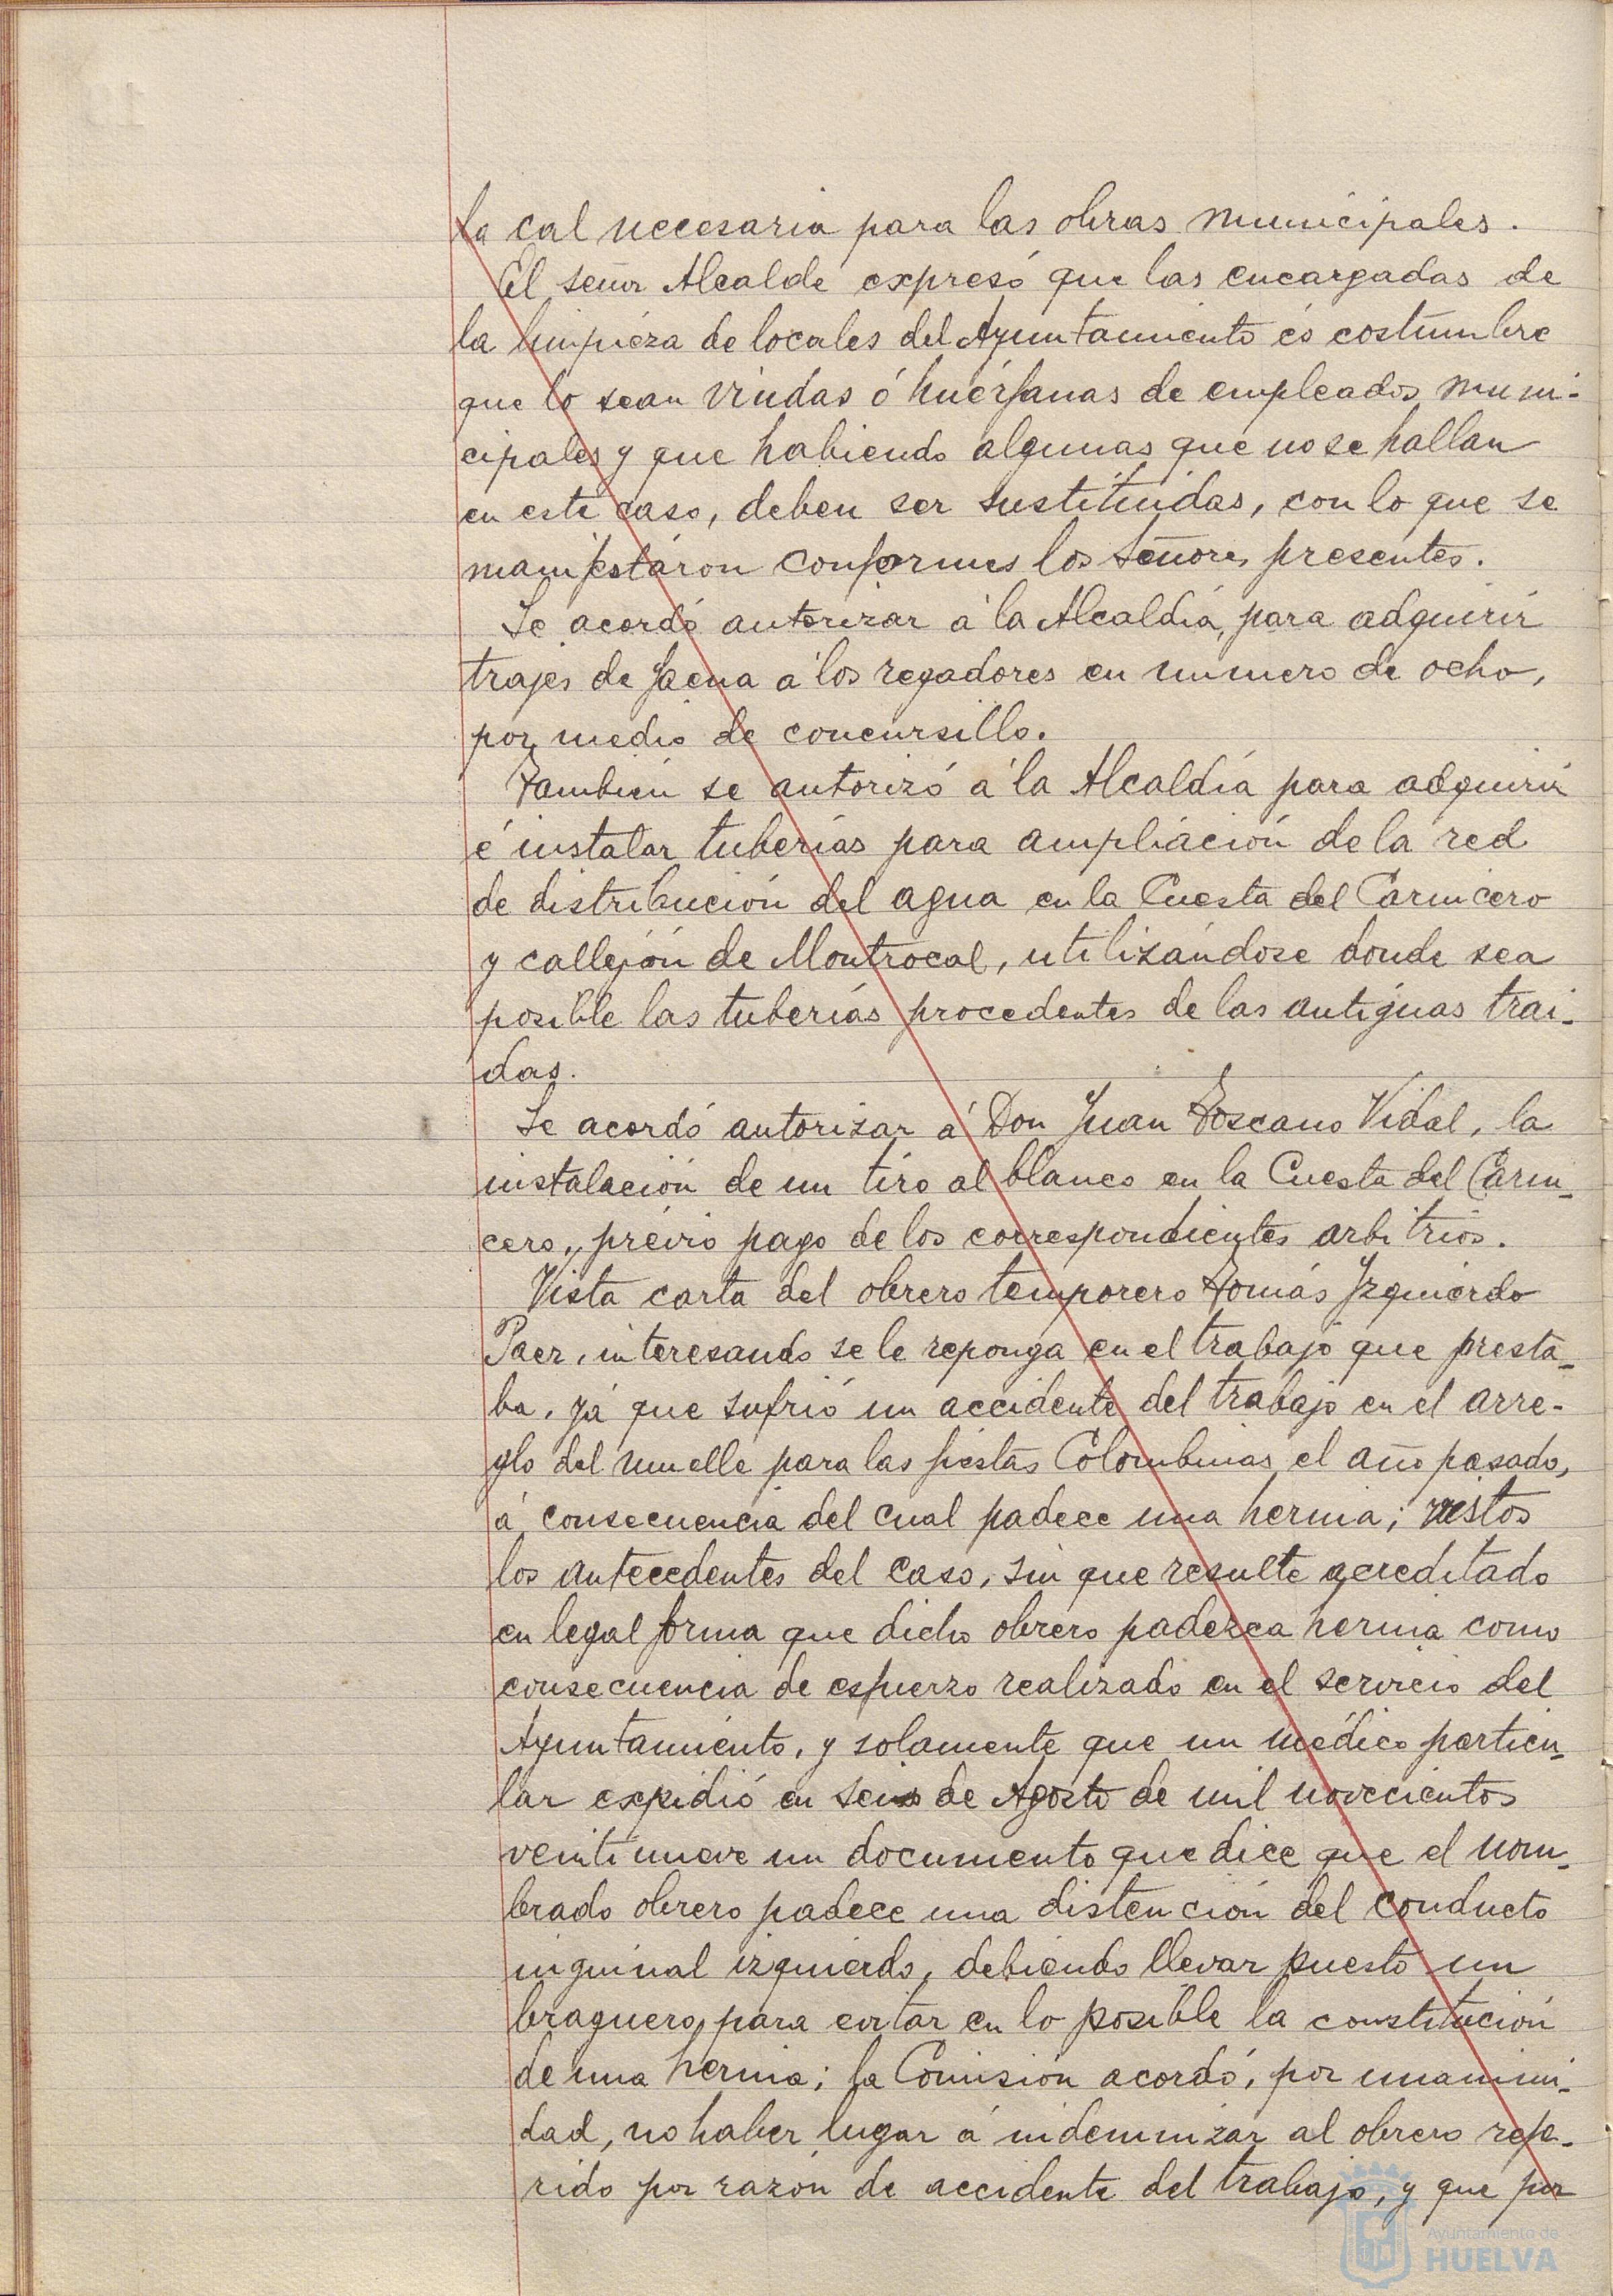 la cal necesaria para las obras municipales.
El señor Alcalde expresó que las encargadas de
la limpieza de locales del Ayuntamiento és costumbre
que lo sean viudas ó huérfanas de empleados muni-
cipales y que habiendo algunas que no se hallan
en este caso, deben ser sustituidas, con lo que se
manifestáron conformes los Señores presentes.
Se acordó autorizar á la Alcaldía, para adquirir
trajes de faena á los regadores en número de ocho,
por medio de concursillo.
También se autorizó á la Alcaldía para adquirir
é instalar tuberías para ampliación de la red
de distribución del agua en la Cuesta del Carnicero
y callejón de Montrocal, utilizándose donde sea
posible las tuberías procedentes de las antiguas trai-
das.
Se acordó autorizar á Don Juan Toscano Vidal, la
instalación de un tiro al blanco en la Cuesta del Carni-
cero, prévio pago de los correspondientes arbitrios.
Vista carta del obrero temporero Tomás Izquierdo
Paer, interesando se le reponga en el trabajo que presta-
ba, yá que sufrió un accidente del trabajo en el arre-
glo del muelle para las fiestas Colombinas el año pasado,
á consecuencia del cual padece una hernia; vistos
los antecedentes del caso, sin que resulte acreditado
en legal forma que dicho obrero padezca hernia como
consecuencia de esfuerzo realizado en el servicio del
Ayuntamiento, y solamente que un médico particu-
lar expidió en seis de Agosto de mil novecientos
veintinueve un documento que dice que el nom-
brado obrero padece una distención del conducto
inguinal izquierdo, debiendo llevar puesto un
braguero, para evitar en lo posible la constitución
de una hernia; la Comisión acordó, por unanimi-
dad, no haber lugar á indemnizar al obrero refe-
rido por razón de accidente del trabajo, y que por
Ayuntamiento de
HUELVA